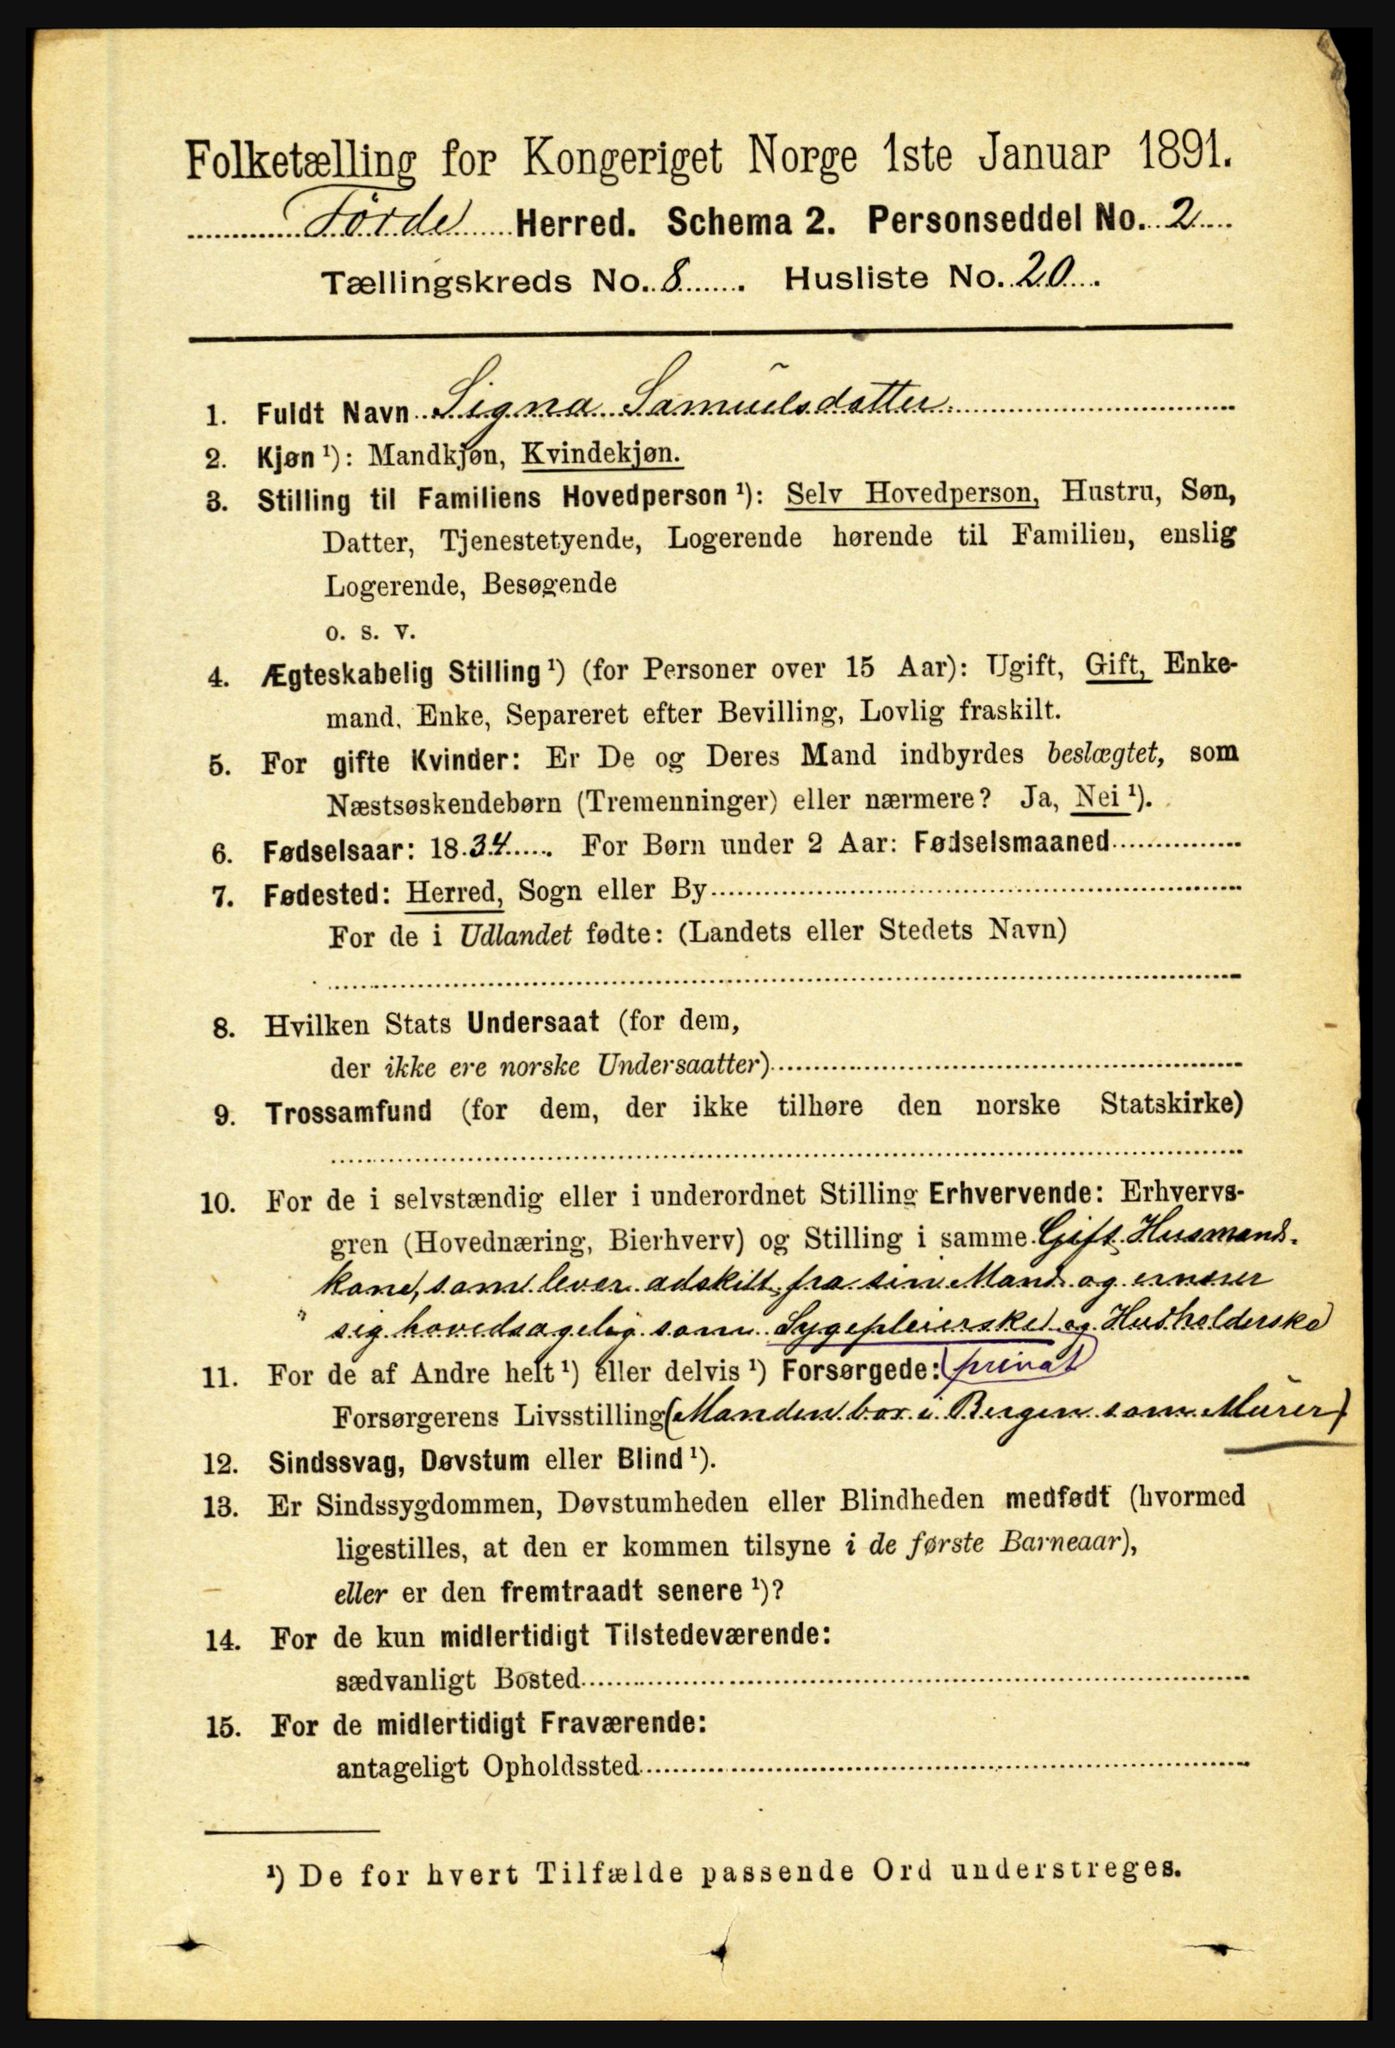 Folketælling for Kongeriget Norge 1ste Januar 1891.
Førde Herred. Schema 2. Personseddel No. 2
Tællingskreds No. 8. Husliste No. 20.
1. Fuldt Navn Signa Samuelsdatter
2. Kjøn ¹): Mandkjøn, Kvindekjøn.
3. Stilling til Familiens Hovedperson ¹): Selv Hovedperson, Hustru, Søn,
Datter, Tjenestetyende, Logerende hørende til Familien, enslig
Logerende, Besøgende
o. s. v.
4. Ægteskabelig Stilling ¹) (for Personer over 15 Aar): Ugift, Gift, Enke-
mand, Enke, Separeret efter Bevilling, Lovlig fraskilt.
5. For gifte Kvinder: Er De og Deres Mand indbyrdes beslægtet, som
Næstsøskendebørn (Tremenninger) eller nærmere? Ja, Nei ¹).
6. Fødselsaar: 1834. For Børn under 2 Aar: Fødselsmaaned
7. Fødested: Herred, Sogn eller By
For de i Udlandet fødte: (Landets eller Stedets Navn)
8. Hvilken Stats Undersaat (for dem,
der ikke ere norske Undersaatter)
9. Trossamfund (for dem, der ikke tilhøre den norske Statskirke)
10. For de i selvstændig eller i underordnet Stilling Erhvervende: Erhvervs-
gren (Hovednæring, Bierhverv) og Stilling i samme. Gift Husmands-
kone, som lever adskilt fra sin Mand og ernærer
sig hovedsagelig som Sygepleierske og Husholderske
11. For de af Andre helt ¹) eller delvis ¹) Forsørgede: privat
Forsørgerens Livsstilling (Manden bor i Bergen som Murer)
12. Sindssvag, Døvstum eller Blind ¹).
13. Er Sindssygdommen, Døvstumheden eller Blindheden medfødt (hvormed
ligestilles, at den er kommen tilsyne i de første Barneaar),
eller er den fremtraadt senere ¹)?
14. For de kun midlertidigt Tilstedeværende:
sædvanligt Bosted
15. For de midlertidigt Fraværende:
antageligt Opholdssted
¹) De for hvert Tilfælde passende Ord understreges.